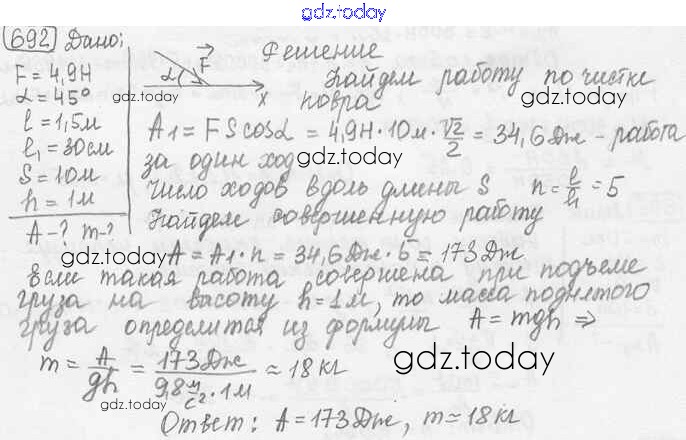 gdz.today
692 Дано:
F = 4,9Н
α = 45°
l = 1,5м
l₁ = 30см
S = 10м
h = 1м
A-? m-?
α F x
gdz.today
Решение
Найдем работу по чистке
ковра
A₁ = FScosα = 4,9Н·10м·√2/2 = 34,6Дж - работа
за один ход
gdz.today
Число ходов вдоль длины S n = l/l₁ = 5
Найдем совершенную работу
gdz.today A = A₁·n = 34,6Дж·5 = 173Дж
Если такая работа совершена при подъеме
груза на высоту h = 1м, то масса поднятого
груза определится из формулы A = mgh ⇒
m = A/gh = 173Дж/9,8 м/с²·1м ≈ 18кг
gdz.today
gdz.today
Ответ: A = 173Дж, m ≈ 18кг